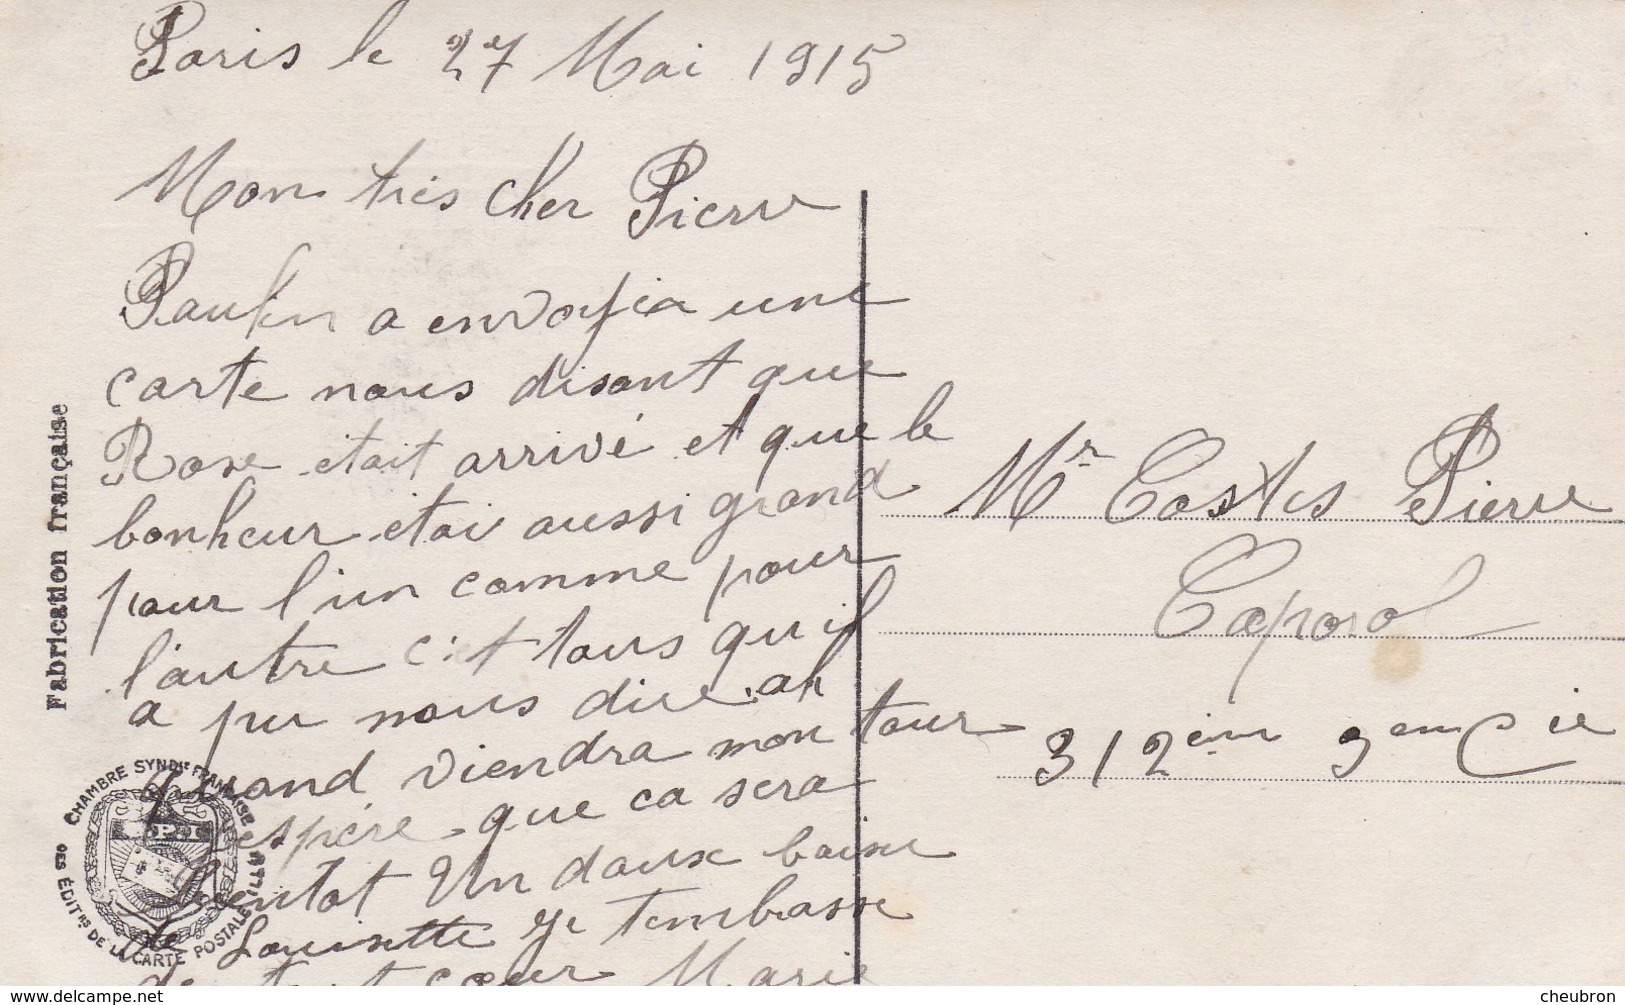 Paris le 27 Mai 1915
Mon très cher Pierre
Paulin a envoyia une
carte nous disant que
Rose était arrivé et que le
bonheur étai aussi grand
pour l'un comme pour
l'autre c'et tous qu'il
a pu nous dire ah
quand viendra mon tour
espére que ca sera
bientot Un doux baiser
de Louisette Je t'embrasse
de tout cœur Marie
Mr Costes Pierre
Caporal
312ème 9em Cie
Fabrication française
CHAMBRE SYNDle FRANÇAISE
ÉDITRS DE LA CARTE POSTALE
www.delcampe.net
cheubron